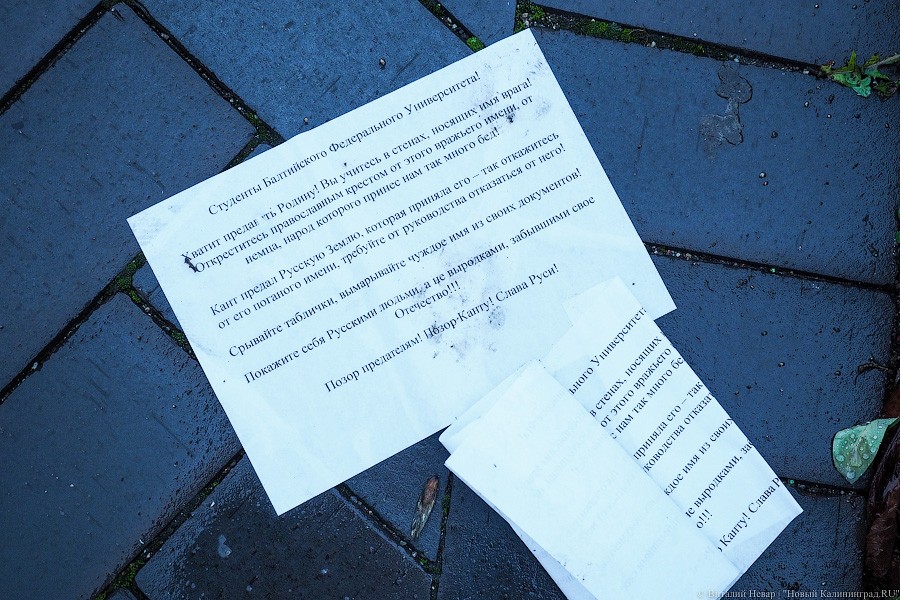 Студенты Балтийского Федерального Университета!
Хватит предавать Родину! Вы учитесь в стенах, носящих имя врага!
Откреститесь православным крестом от этого вражьего имени, от
немца, народ которого принес нам так много бед!
Кант предал Русскую Землю, которая приняла его – так откажитесь
от его поганого имени, требуйте от руководства отказаться от него!
Срывайте таблички, вымарывайте чуждое имя из своих документов!
Покажите себя Русскими людьми, а не выродками, забывшими свое
Отечество!!!
Позор предателям! Позор Канту! Слава Руси!
льного Университета
в стенах, носящих
от этого вражьего
нам так много бе
приняла его – так
ководства отказат
ждое имя из своих
не выродками, за
о!!!
Канту! Слава Р
© Виталий Невар | "Новый Калининград.RU"